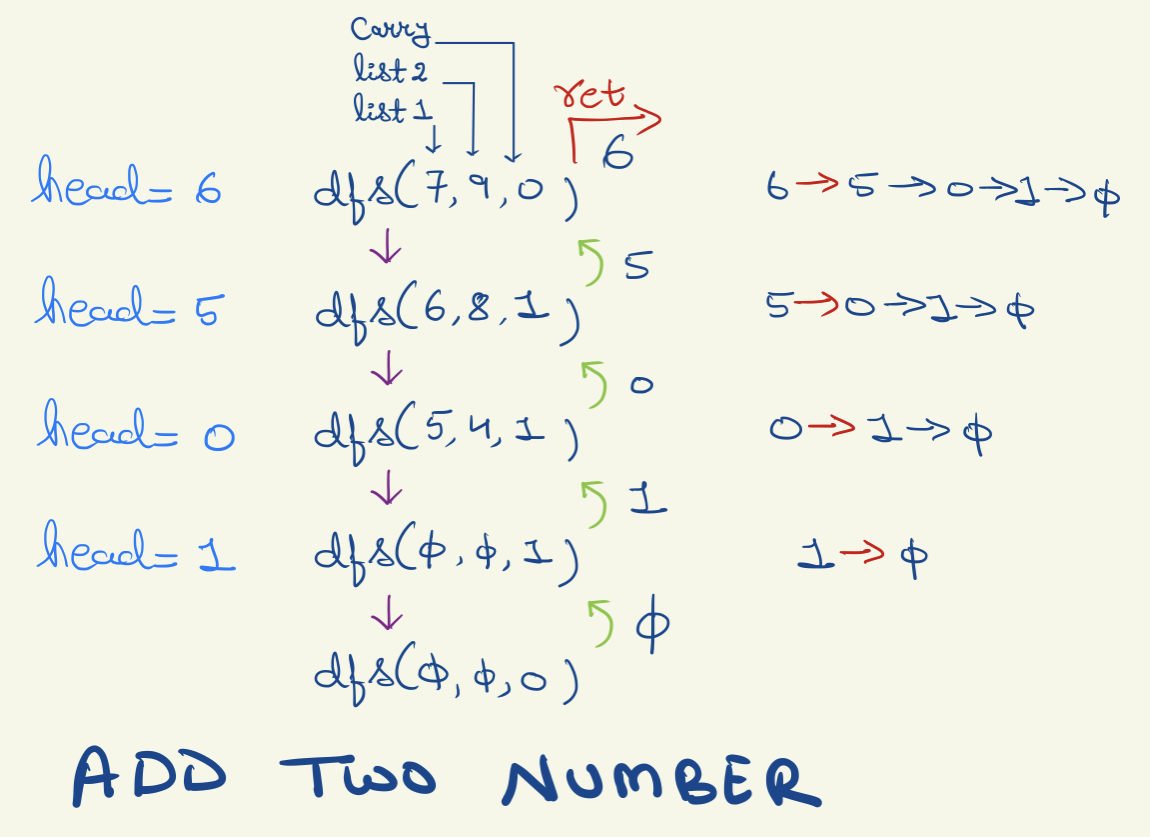 Carry
list 2
list 1
ret
6
head= 6 dfs(7,9,0) 6→5→0→1→φ
5
head= 5 dfs(6,8,1) 5→0→1→φ
0
head= 0 dfs(5,4,1) 0→1→φ
1
head= 1 dfs(φ,φ,1) 1→φ
φ
dfs(φ,φ,0)
ADD TWO NUMBER